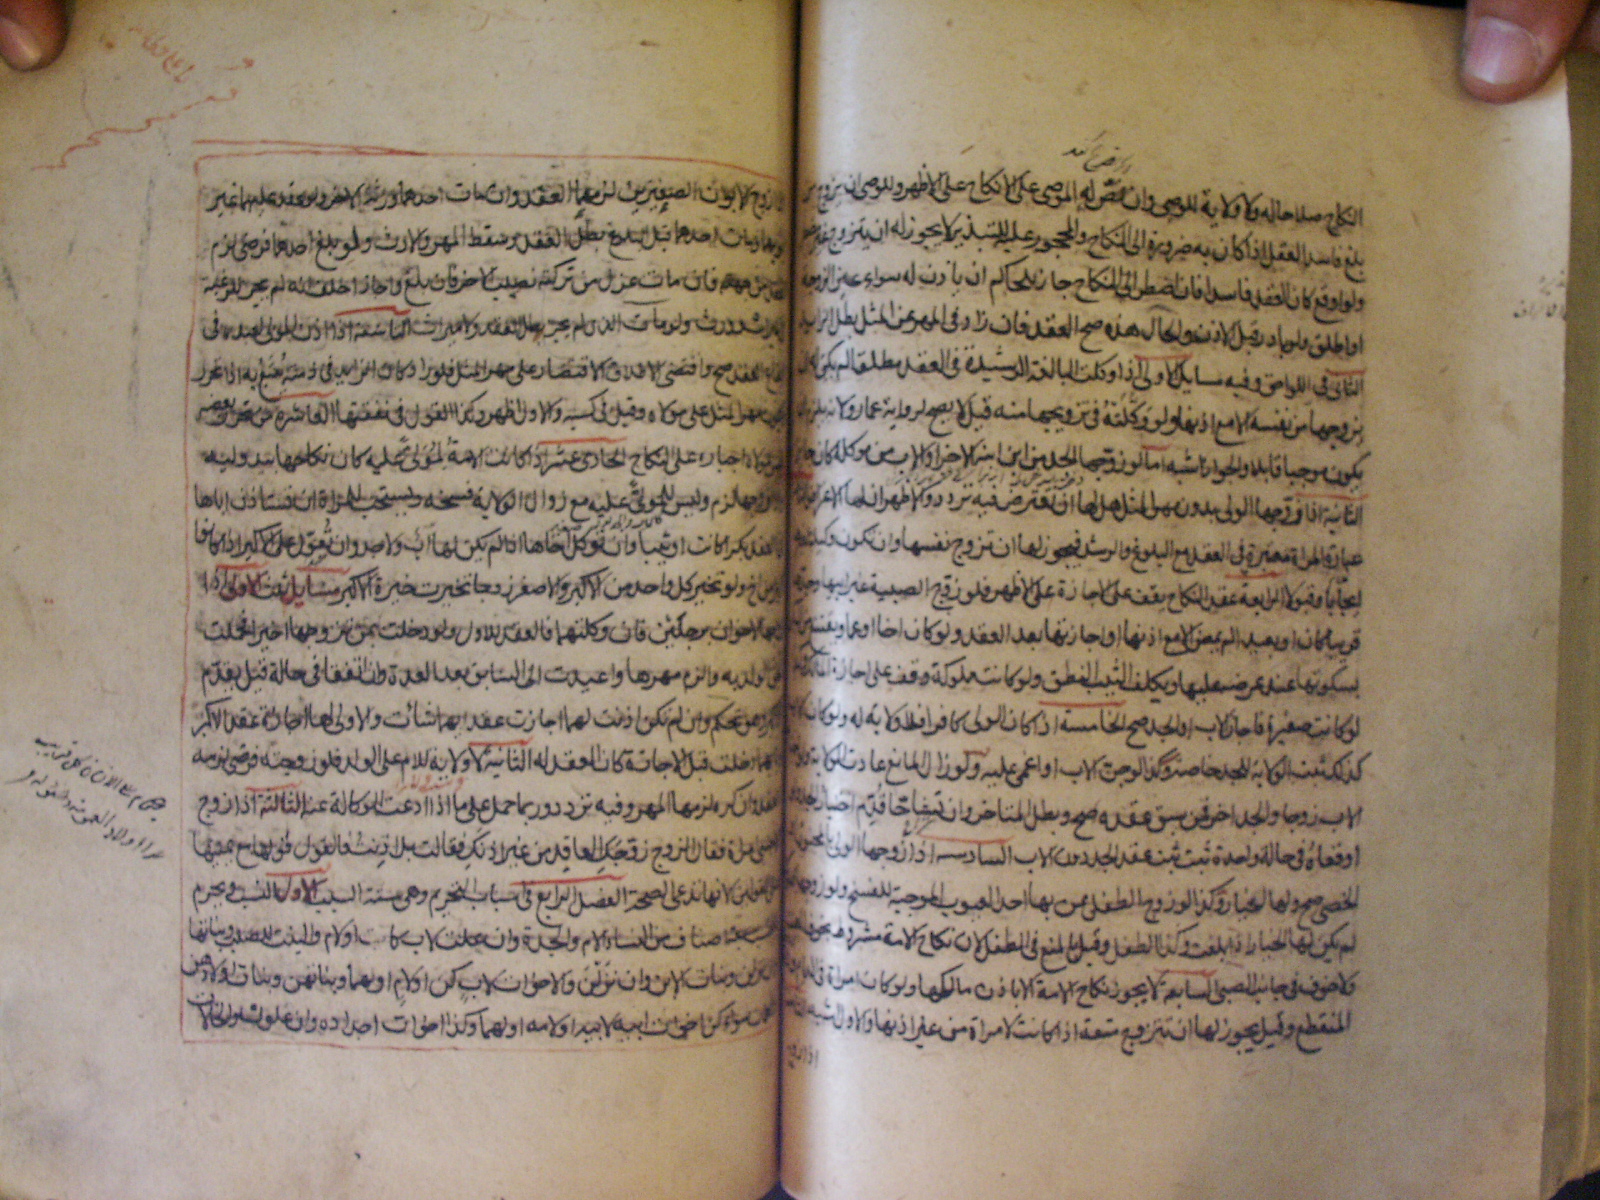 النكاح صلاحا له ولا ولاية للوصي وان نص له الموصي على الانكاح على الاظهر وللوصي ان يزوج من
بلغ فاسد العقل اذا كان به ضرورة الى النكاح والمحجور عليه للتبذير لا يجوز له ان يتزوج غير
ولو اوقع كان العقد فاسدا فان اضطر الى النكاح جاز للحاكم ان ياذن له سواء عين الزوجة
او اطلق ولو بادر قبل الاذن والحال هذه صح العقد فان زاد في المهر عن المثل بطل الزايد
الثاني في اللواحق وفيه مسايل الاولى اذا وكلت البالغة الرشيدة في العقد مطلقا لم يكن له ان
يزوجها من نفسه الا مع اذنها ولو وكلته في تزويجها منه قيل لا يصح لرواية عمار ولانه يلزم ان
يكون موجبا قابلا والجواز اشبه اما لو زوجها الجد من ابن ابنه الاخر او الاب من موكله كان جايزا
الثانية اذا زوجها الولي بدون مهر المثل هل لها ان تعترض فيه تردد والاظهر ان لها الاعتراض
عبارة المراة معتبرة في العقد مع البلوغ والرشد فيجوز لها ان تزوج نفسها وان تكون وكيلة
ايجابا وقبولا الرابعة عقد النكاح يقف على الاجازة على الاظهر فلو زوج الصبية غير ابيها وجدها
قريبا كان او بعيدا لم يمض الا مع اذنها او اجازتها بعد العقد ولو كان اخا او عما ويقنع
بسكوتها عند عرضه عليها ويكلف الثيب النطق ولو كانت مملوكة وقف على اجازة المالك
لو كانت صغيرة فاجاز الاب او الجد صح الخامسة اذا كان الولي كافرا فلا ولاية له ولو كان
كذلك ثبت الولاية للجد خاصة وكذا لو جن الاب او اغمي عليه ولو زال المانع عادت الولاية ولو
الاب زوجا والجد اخر فمن سبق عقده صح وبطل المتاخر وان تشاحا قدم اختيار الجد
اوقعاه في حالة واحدة ثبت عقد الجد دون الاب السادسة اذا زوجها الولي بالمجنون
الخصي صح ولها الخيار وكذا لو زوج الطفل بمن بها احد العيوب الموجبة للفسخ ولو زوجها
لم يكن لها الخيار اذا بلغت وكذا الطفل وقيل بالمنع في الطفل لان نكاح الامة مشروط بخوف العنت
ولا خوف في جانب الصبي السابعة لا يجوز نكاح الامة الا باذن مالكها ولو كان امراة في الدايم
المنقطع وقيل يجوز لها ان تتزوج متعة اذا كانت لامراة من غير اذنها والاول اشبه
اذا زوج
اذا زوج الابوان الصغيرين لزمهما العقد وان مات احدهما ورثه الاخر ولو عقد عليهما غير
ابويهما ومات احدهما قبل البلوغ بطل العقد وسقط المهر والارث ولو بلغ احدهما فرضي لزم
العقد من جهته فان مات عزل من تركته نصيب الاخر فان بلغ واجاز احلف انه لم يجز للرغبة
الميراث وورث ولو مات الذي لم يجز بطل العقد ولا ميراث التاسعة اذا اذن المولى لعبده في
ايقاع العقد صح واقتضى الاطلاق الاقتصار على مهر المثل فلو زاد كان الزايد في ذمته يتبع به اذا تحرر
ويكون مهر المثل على مولاه وقيل في كسبه والاول اظهر وكذا القول في نفقتها العاشرة من تحرر بعضه
ليس لمولاه اجباره على النكاح الحادي عشر اذا كانت الامة لمولى عليه كان نكاحها بيد وليه
فاذا زوجها لزم وليس للمولى عليه مع زوال الولاية فسخه ويستحب للمراة ان تستاذن اباها
في العقد بكرا كانت او ثيبا وان توكل اخاها اذا لم يكن لها اب ولا جد وان تعول على الاكبر اذا كانوا
اكثر من اخ ولو تخير كل واحد من الاكبر والاصغر زوجا تخيرت خيرة الاكبر مسايل ثلث الاولى اذا
زوجها الاخوان برجلين فان وكلتهما فالعقد للاول ولو دخلت بمن تزوجها اخيرا فحملت
الحق الولد به والزم مهرها واعيدت الى السابق بعد العدة وان اتفقا في حالة قيل يقدم
الاكبر وهو تحكم وان لم تكن اذنت لهما اجازت عقد ايهما شاءت والاولى لها اجازة عقد الاكبر
وبايهما دخلت قبل الاجازة كان العقد له الثانية لا ولاية للام على الولد فلو زوجته فرضي لزمه
العقد وان كره لزمها المهر وفيه تردد ربما حمل على ما اذا ادعت الوكالة عنه الثالثة اذا زوج
الاجنبي امراة فقال الزوج زوجك العاقد من غير اذنك فقالت بل اذنت فالقول قولها مع يمينها
على القولين لانها تدعي الصحة الفصل الرابع في اسباب التحريم وهي ستة السبب الاول النسب ويحرم
به سبعة اصناف من النساء الام والجدة وان علت لاب كانت او لام والبنت للصلب وبناتها
وان نزلن وبنات الابن وان نزلن والاخوات لاب كن او لام او لهما وبناتهن وبنات اولادهن
والعمات سواء كن اخوات ابيه لابيه او لامه او لهما وكذا اخوات اجداده وان علون والخالات